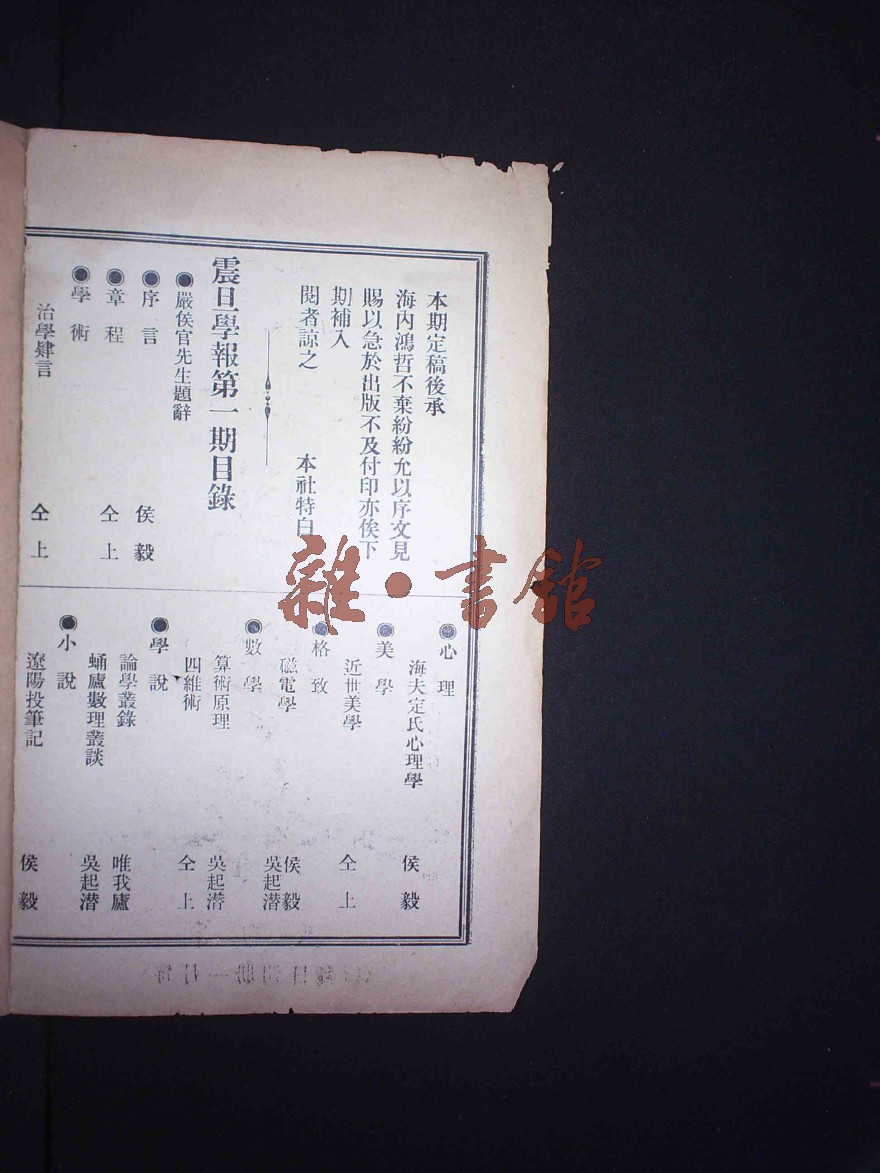 本期定稿後承
海內鴻哲不棄紛紛允以序文見
賜以急於出版不及付印亦俟下
期補入
閱者諒之 本社特白
震旦學報第一期目錄
●嚴侯官先生題辭
●序言 侯毅
●章程 仝上
●學術
治學肄言 仝上
●心理
海夫定氏心理學 侯毅
●美學
近世美學 仝上
●格致
磁電學 侯毅 吳起潛
●數學
算術原理 吳起潛
四維術 仝上
●學說
論學叢錄 唯我廬
蛹廬數理叢談 吳起潛
●小說
遼陽投筆記 侯毅
雜·書館